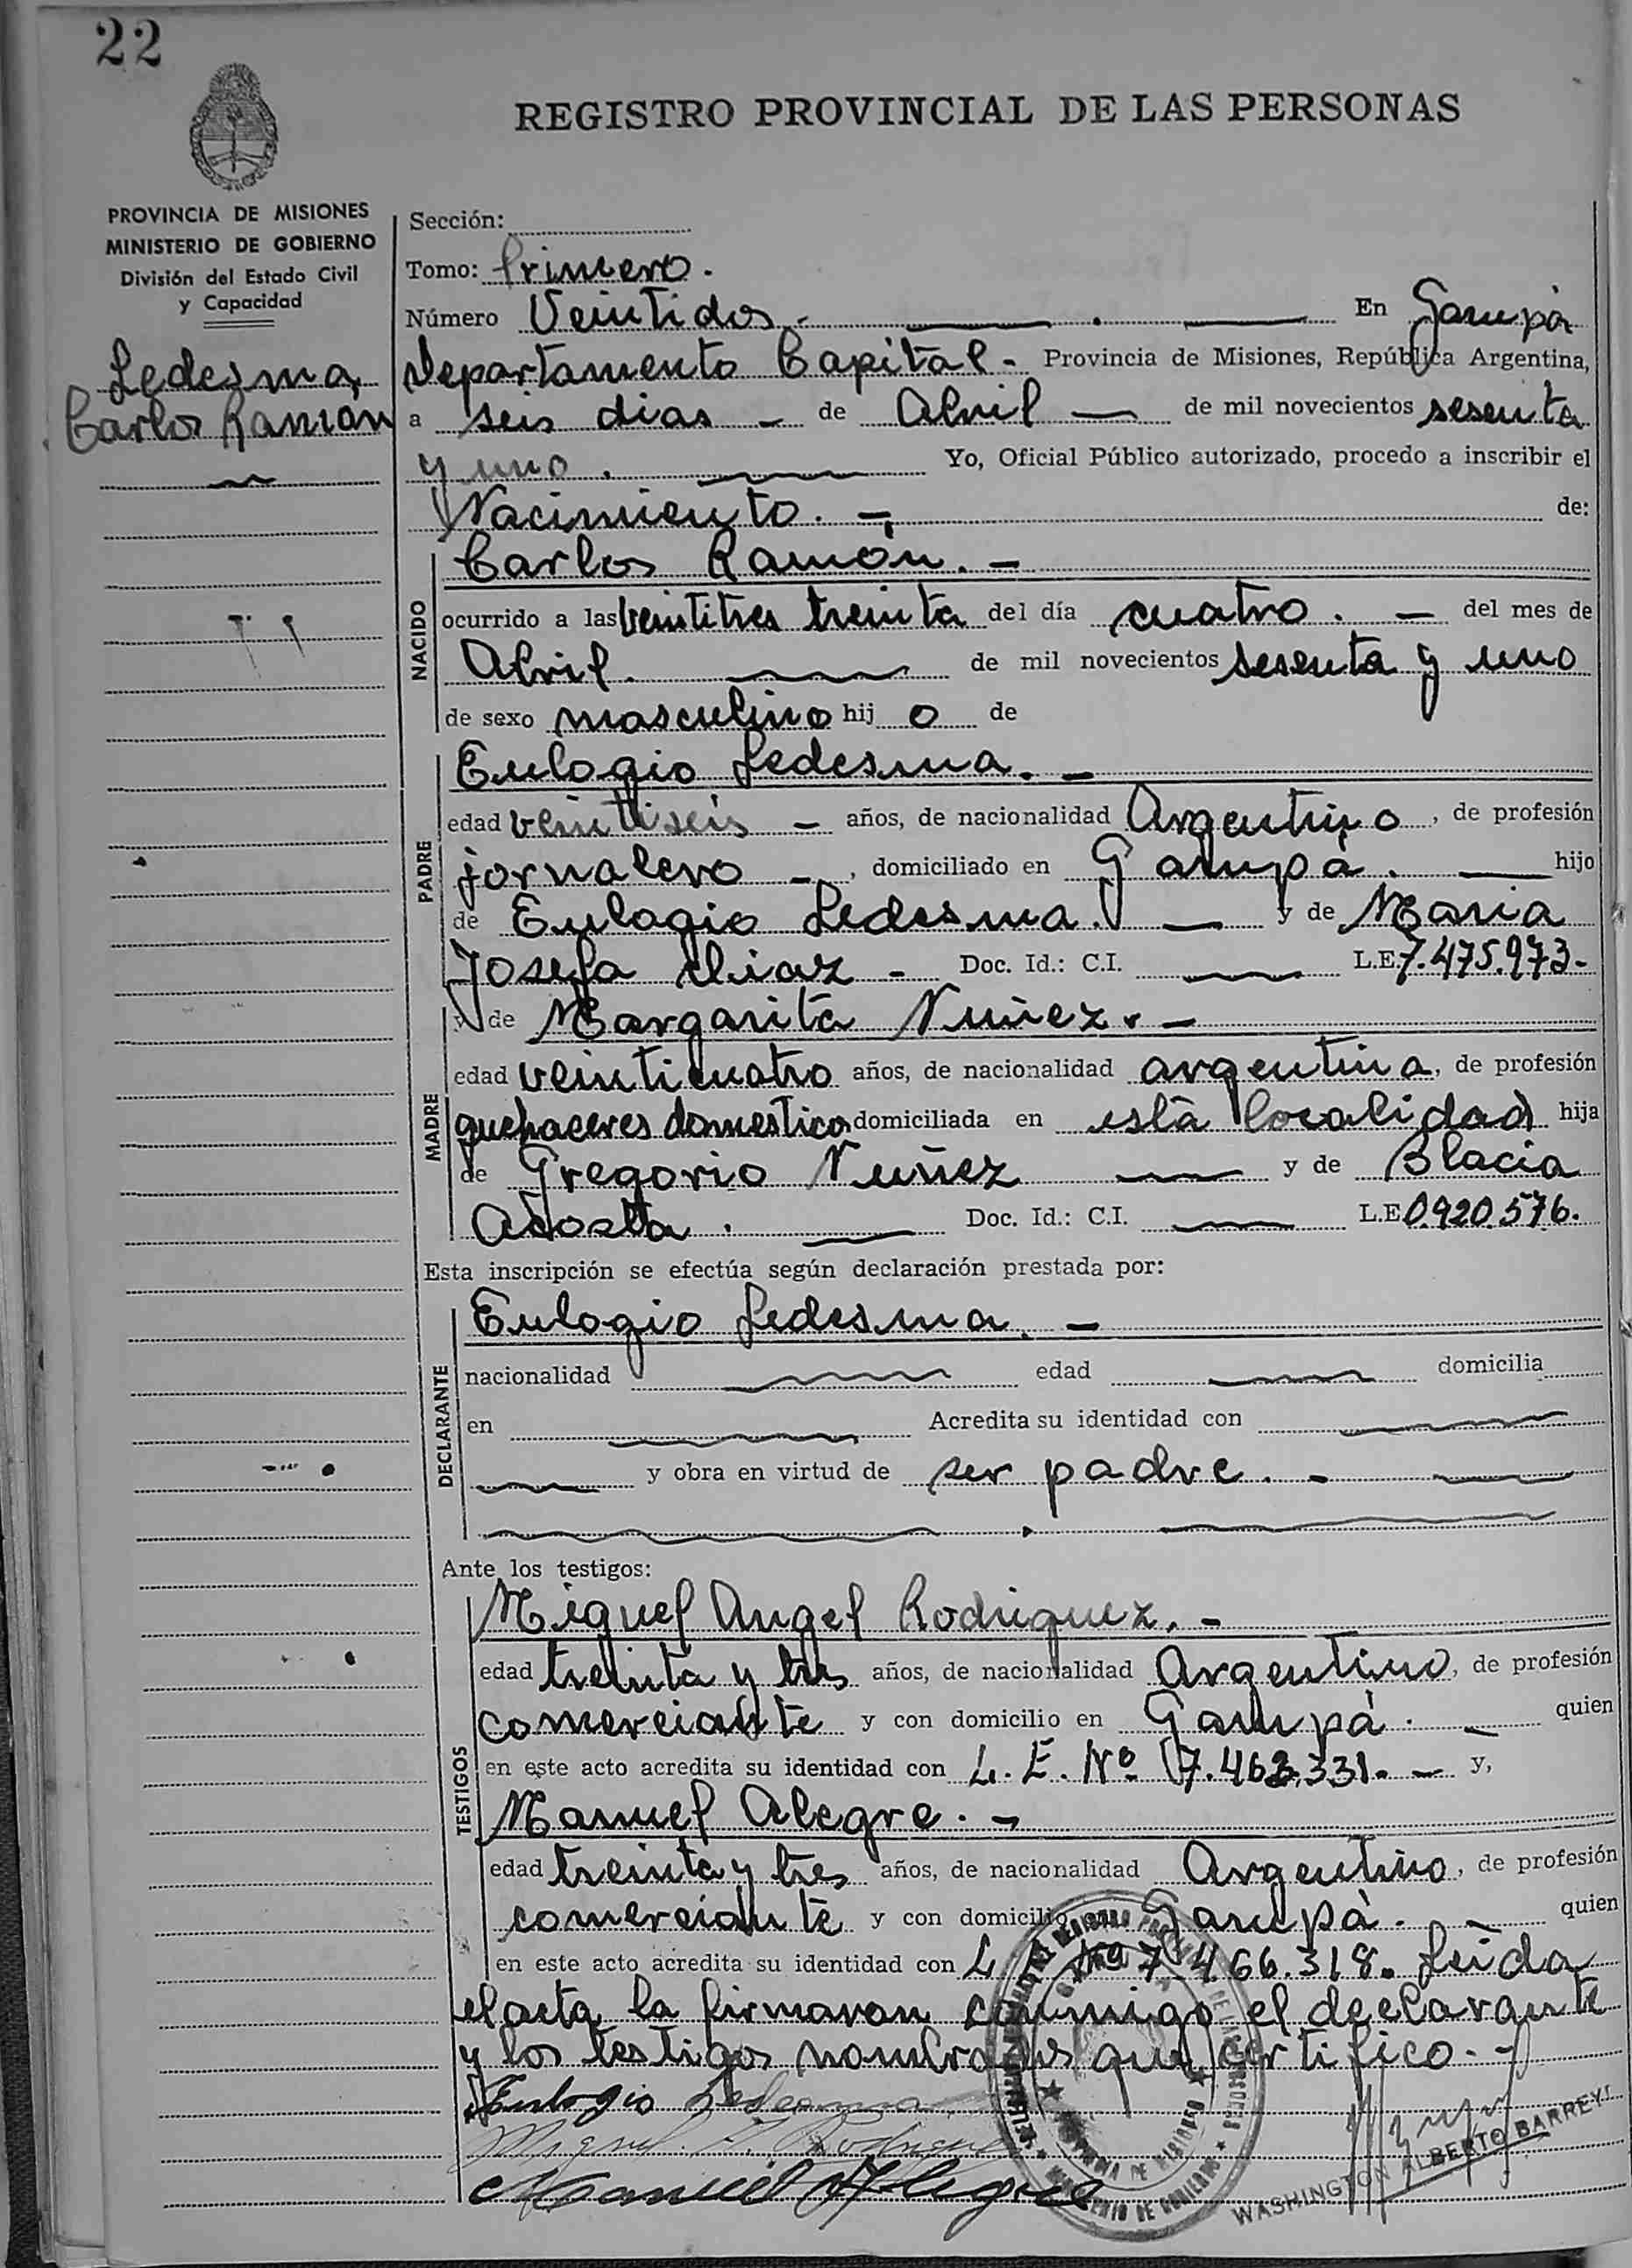 22
REGISTRO PROVINCIAL DE LAS PERSONAS
PROVINCIA DE MISIONES
MINISTERIO DE GOBIERNO
División del Estado Civil
y Capacidad
Ledesma
Carlos Ramón
Sección:
Tomo: Primero.
Número Veintidos.- En Garupá
Departamento Capital - Provincia de Misiones, República Argentina,
a seis dias - de Abril — de mil novecientos sesenta
y uno. Yo, Oficial Público autorizado, procedo a inscribir el
Nacimiento. - de:
NACIDO
Carlos Ramón. -
ocurrido a las veintitres treinta del día cuatro. - del mes de
Abril. de mil novecientos sesenta y uno
de sexo masculino hij o de
PADRE
Eulogio Ledesma. -
edad veintiseis - años, de nacionalidad Argentino, de profesión
jornalero -, domiciliado en Garupá. — hijo
de Eulogio Ledesma. — y de Maria
Josefa Diaz - Doc. Id.: C.I. — L.E 7.475.973-
MADRE
y de Margarita Nuñez. -
edad veinticuatro años, de nacionalidad argentina, de profesión
quehaceres domestico domiciliada en està localidad hija
de Gregorio Nuñez — y de Blacia
Acosta. — Doc. Id.: C.I. — L.E 0.920.576.
Esta inscripción se efectúa según declaración prestada por:
DECLARANTE
Eulogio Ledesma. -
nacionalidad — edad — domicilia
en — Acredita su identidad con —
— y obra en virtud de ser padre. -
Ante los testigos:
TESTIGOS
Miguel Angel Rodriguez. -
edad treinta y tres años, de nacionalidad Argentino, de profesión
comerciante y con domicilio en Garupà. — quien
en este acto acredita su identidad con L. E. Nº 7.463.331. - y,
Manuel Alegre. -
edad treinta y tres años, de nacionalidad Argentino, de profesión
comerciante y con domicilio en Garupà. - quien
en este acto acredita su identidad con L Nº 7.466.318. Leida
el acta la firmaron conmigo el declarante
y los testigos nombrados que certifico. -
Eulogio Ledesma
Miguel A. Rodriguez
Manuel Alegre
WASHINGTON ALBERTO BARREYR